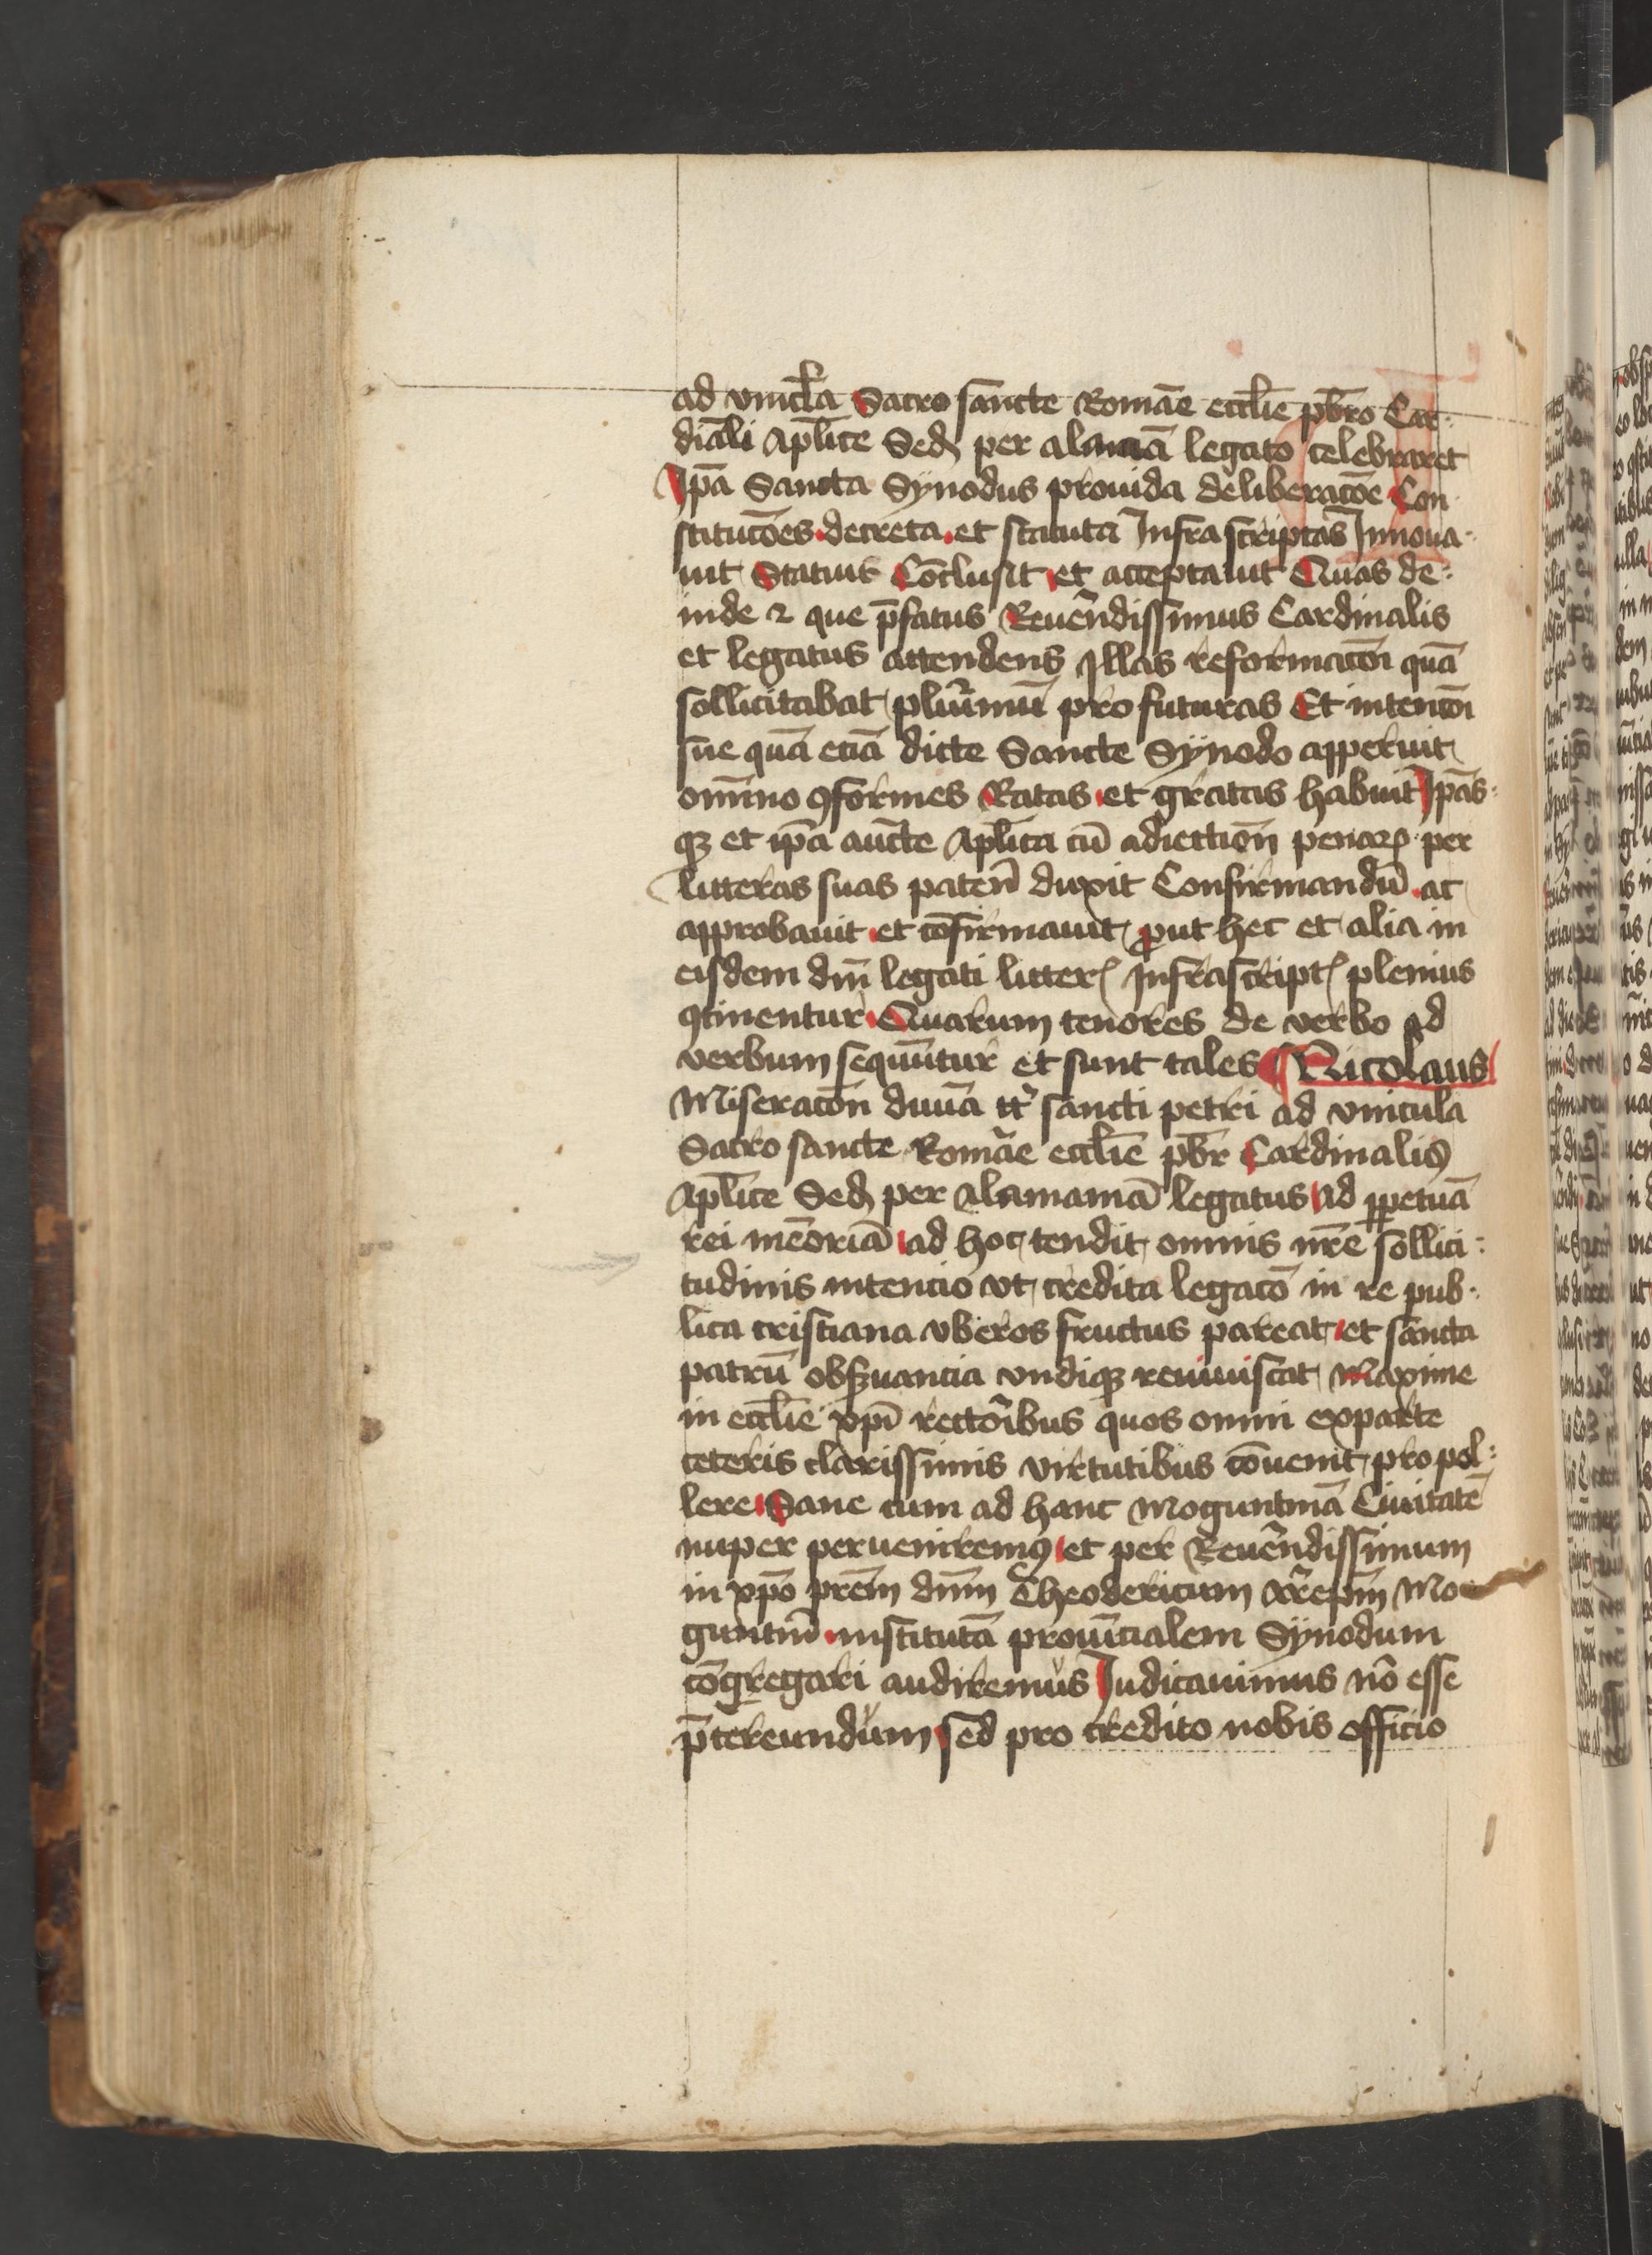 ad vinc̄la Sacro sancte Romāe eccl̄ie pb̄ro Car-
dīali Apl̄ice Sed̛ per alm̄aīā legato celebraret
Ip̄a Sancta Sÿnodus prouida deliberacōe Con
stitucōes decreta et statuta Infrascriptas Innoua-
uit Statuit Cōclusit et acceptauit Quas de-
inde ⁊ que p̄fatus Reuēndissimus Cardinalis
et legatus attendens Illas reformacōi quā
sollicitabat plūimū pro futuras Et intencōi
sue quā eciā dicte Sancte Sÿnodo apperuit
om̄īno ꝯformes Ratas et gratas habuit Ip̄as-
qꝫ et ip̄a auc̄te Apl̄ica cū adiection̄ penaꝝ per
litteras suas paten̄ duxit Confirmandū ac
approbauit et cōfirmauit ꝓut hec et alia in
eisdem dn̄i legati litter̛ Infrascript̛ plenius
ꝯtinentur Quarum tenores de verbo ad
verbum sequūtur et sunt tales Nicolaus
Miseracōn diuīa tt̄ sancti petri ad vincula
Sacro sancte Romāe eccl̄ie pb̄r Cardinalis
Apl̄ice Sed̛ per alamaniā legatus ad ꝑpetuā
rei mēoriā ad hoc tendit omnis nr̄e sollici-
tudinis intencio vt credita legacō in re pub-
lica cristiana vberos fructus pareat et sancta
patrū obẜuancia vndiqꝫ reuiuiscat Maxime
in eccl̄ie xp̄i rectoribus quos omni exparte
ceteris clarissimis virtutibus cōuenit propol-
lere Sane cum ad hanc Moguntinā Ciuitatē
nuper perueniremꝰ et per Reuēndissimum
in xp̄o prēm dn̄m Theodericum Ar̄ep̄m Mo
guntin̄ institutā prouīcialem Sÿnodum
cōgregari audiremus Iudicauimus nō esse
p̄tereundum sed pro credito nobis officio